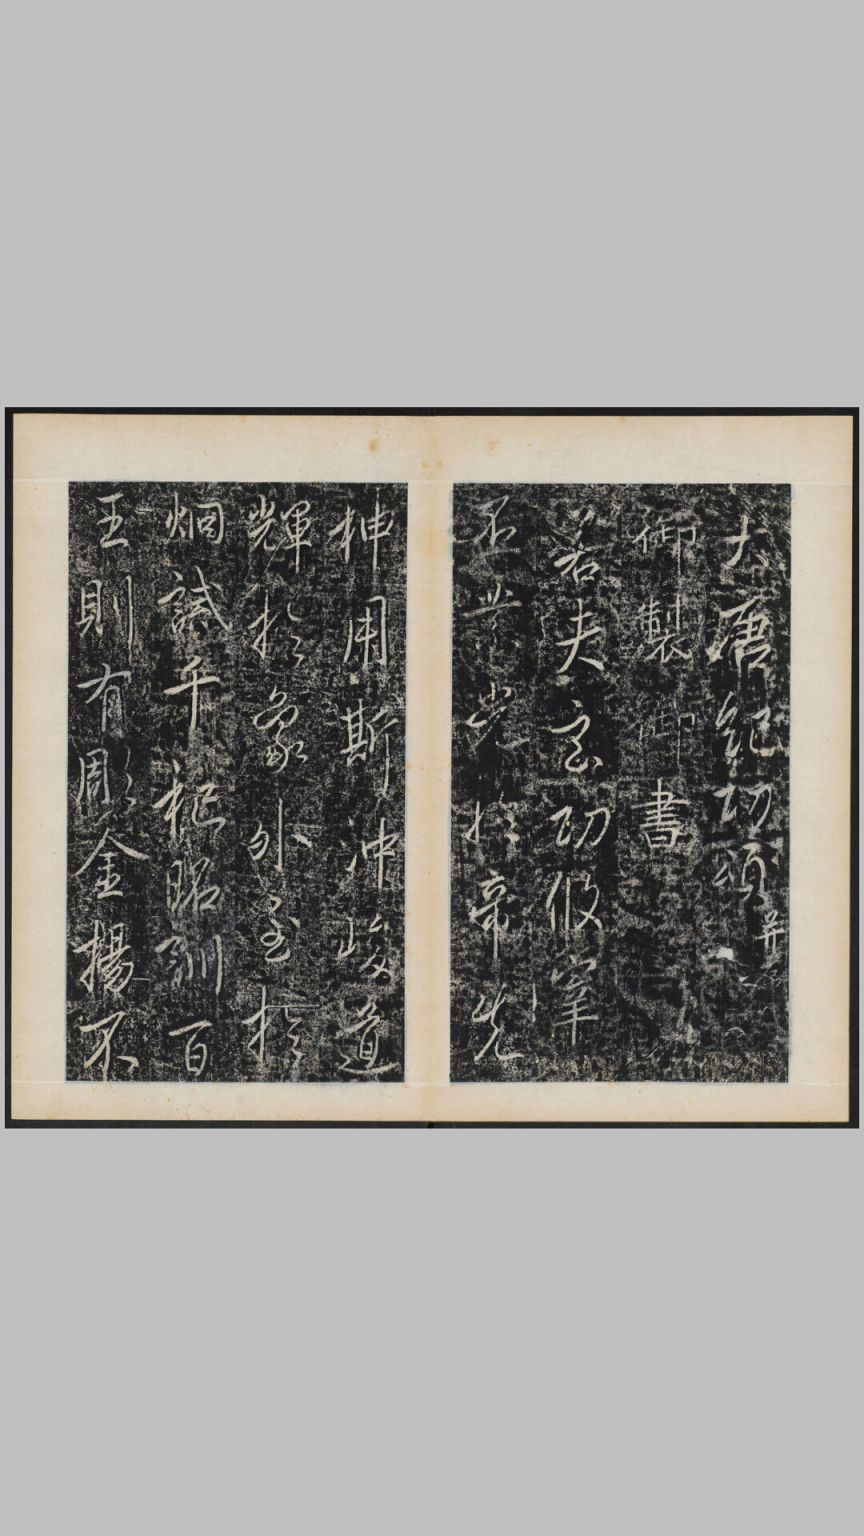 大唐紀功頌并序
御製御書
若夫玄功攸窂
丕業光於帝先
神用斯沖峻道
輝於象外至於
炯誡千祀昭訓百
王則有彫金揚不